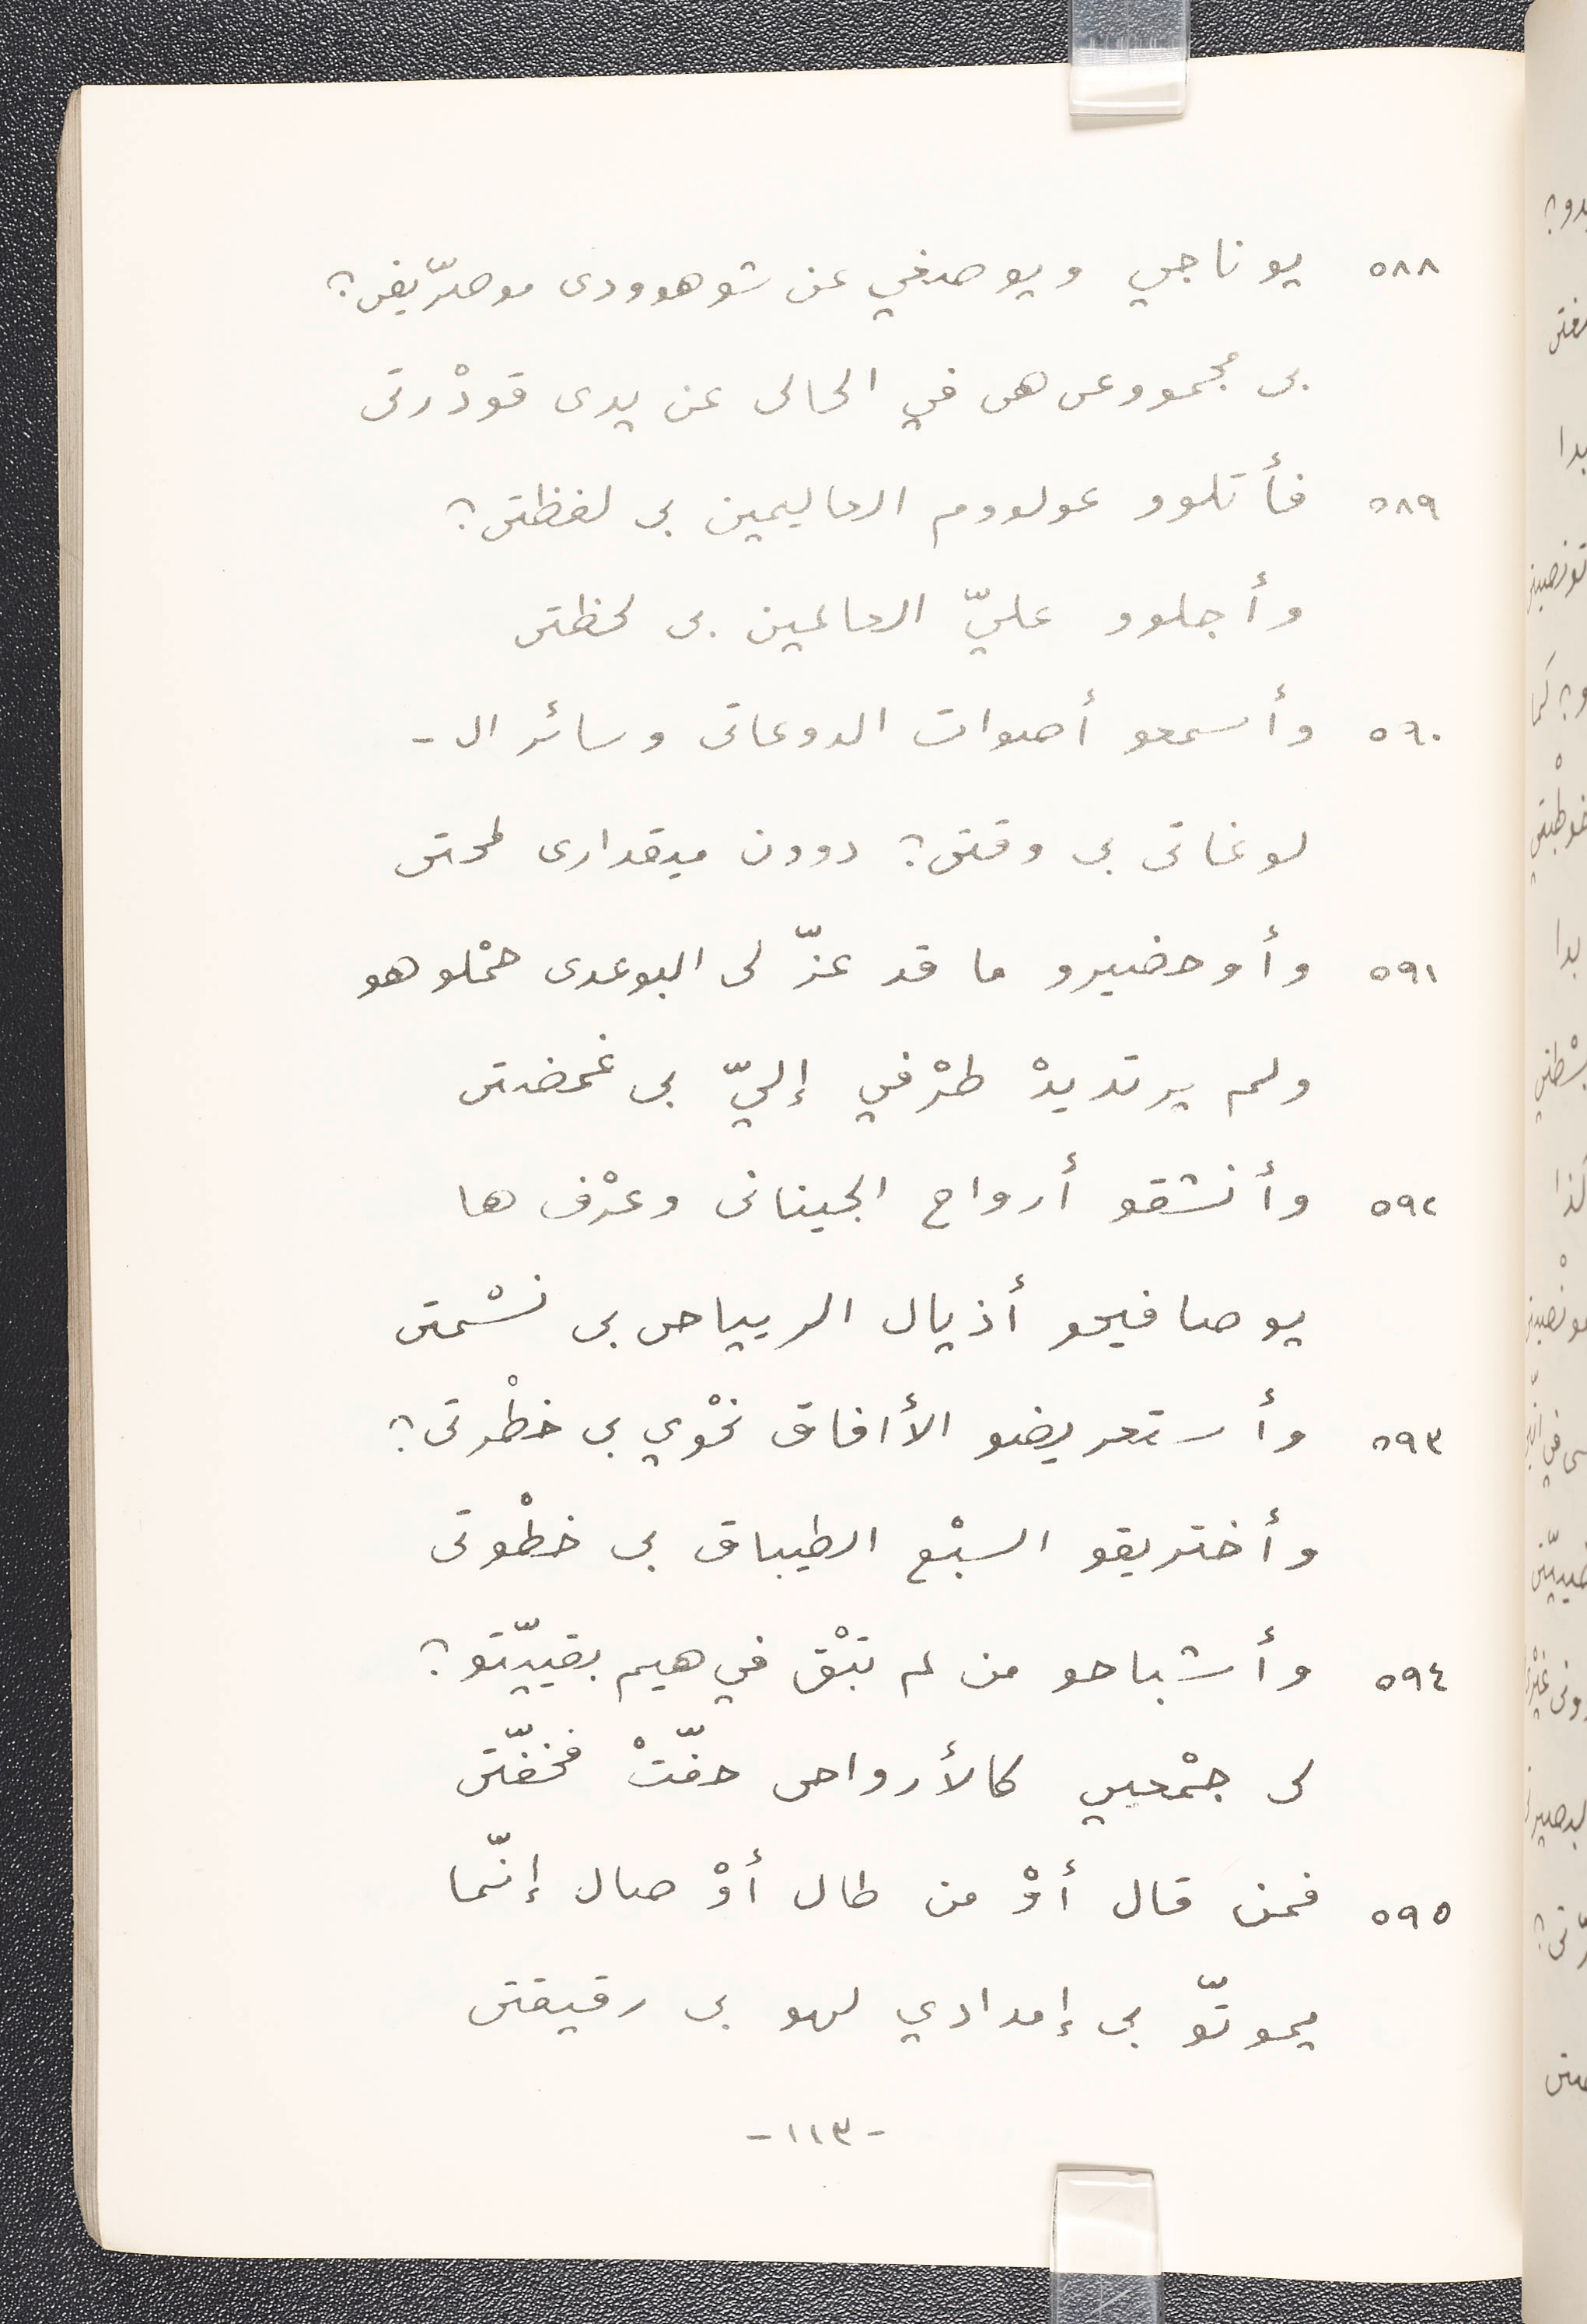 ٥٨٨ يوناجي ويوصغي عن شوهوودى موصرّيفن؟
بى مجمووعى هى في الحالى عن يدى قودْرتى
٥٨٩ فأتلوو عولووم العاليمين بى لفظتن؟
وأجلوو عليّ العالمين بى لحظتن
٥٩٠ وأسمعو أصوات الدوعاتى وسائر الـ-
لوغاتى بى وقتن؟ دوون ميقدارى لمحتن
٥٩١ وأوحضيرو ما قد عزّ لى البوعدى حمْلوهو
ولم يرتديدْ طرْفي إليّ بى غمضتن
٥٩٢ وأنشقو أرواح الجينانى وعرْف ها
يوصافيحو أذيال الريياحى بى نسْمتن
٥٩٣ وأستعريضو الأافاق نحْوي بى خطْرتى؟
وأختريقو السبْع الطيباق بى خطْوتى
٥٩٤ وأشباحو من لم تبْق في هيم بقييّتو؟
لى جمْعيي كالأرواحى حفّتْ فخفّتى
٥٩٥ فمن قال أوْ من طال أوْ صال إنّما
يموتّو بى إمدادي لهو بى رقيقتن
-١١٣-